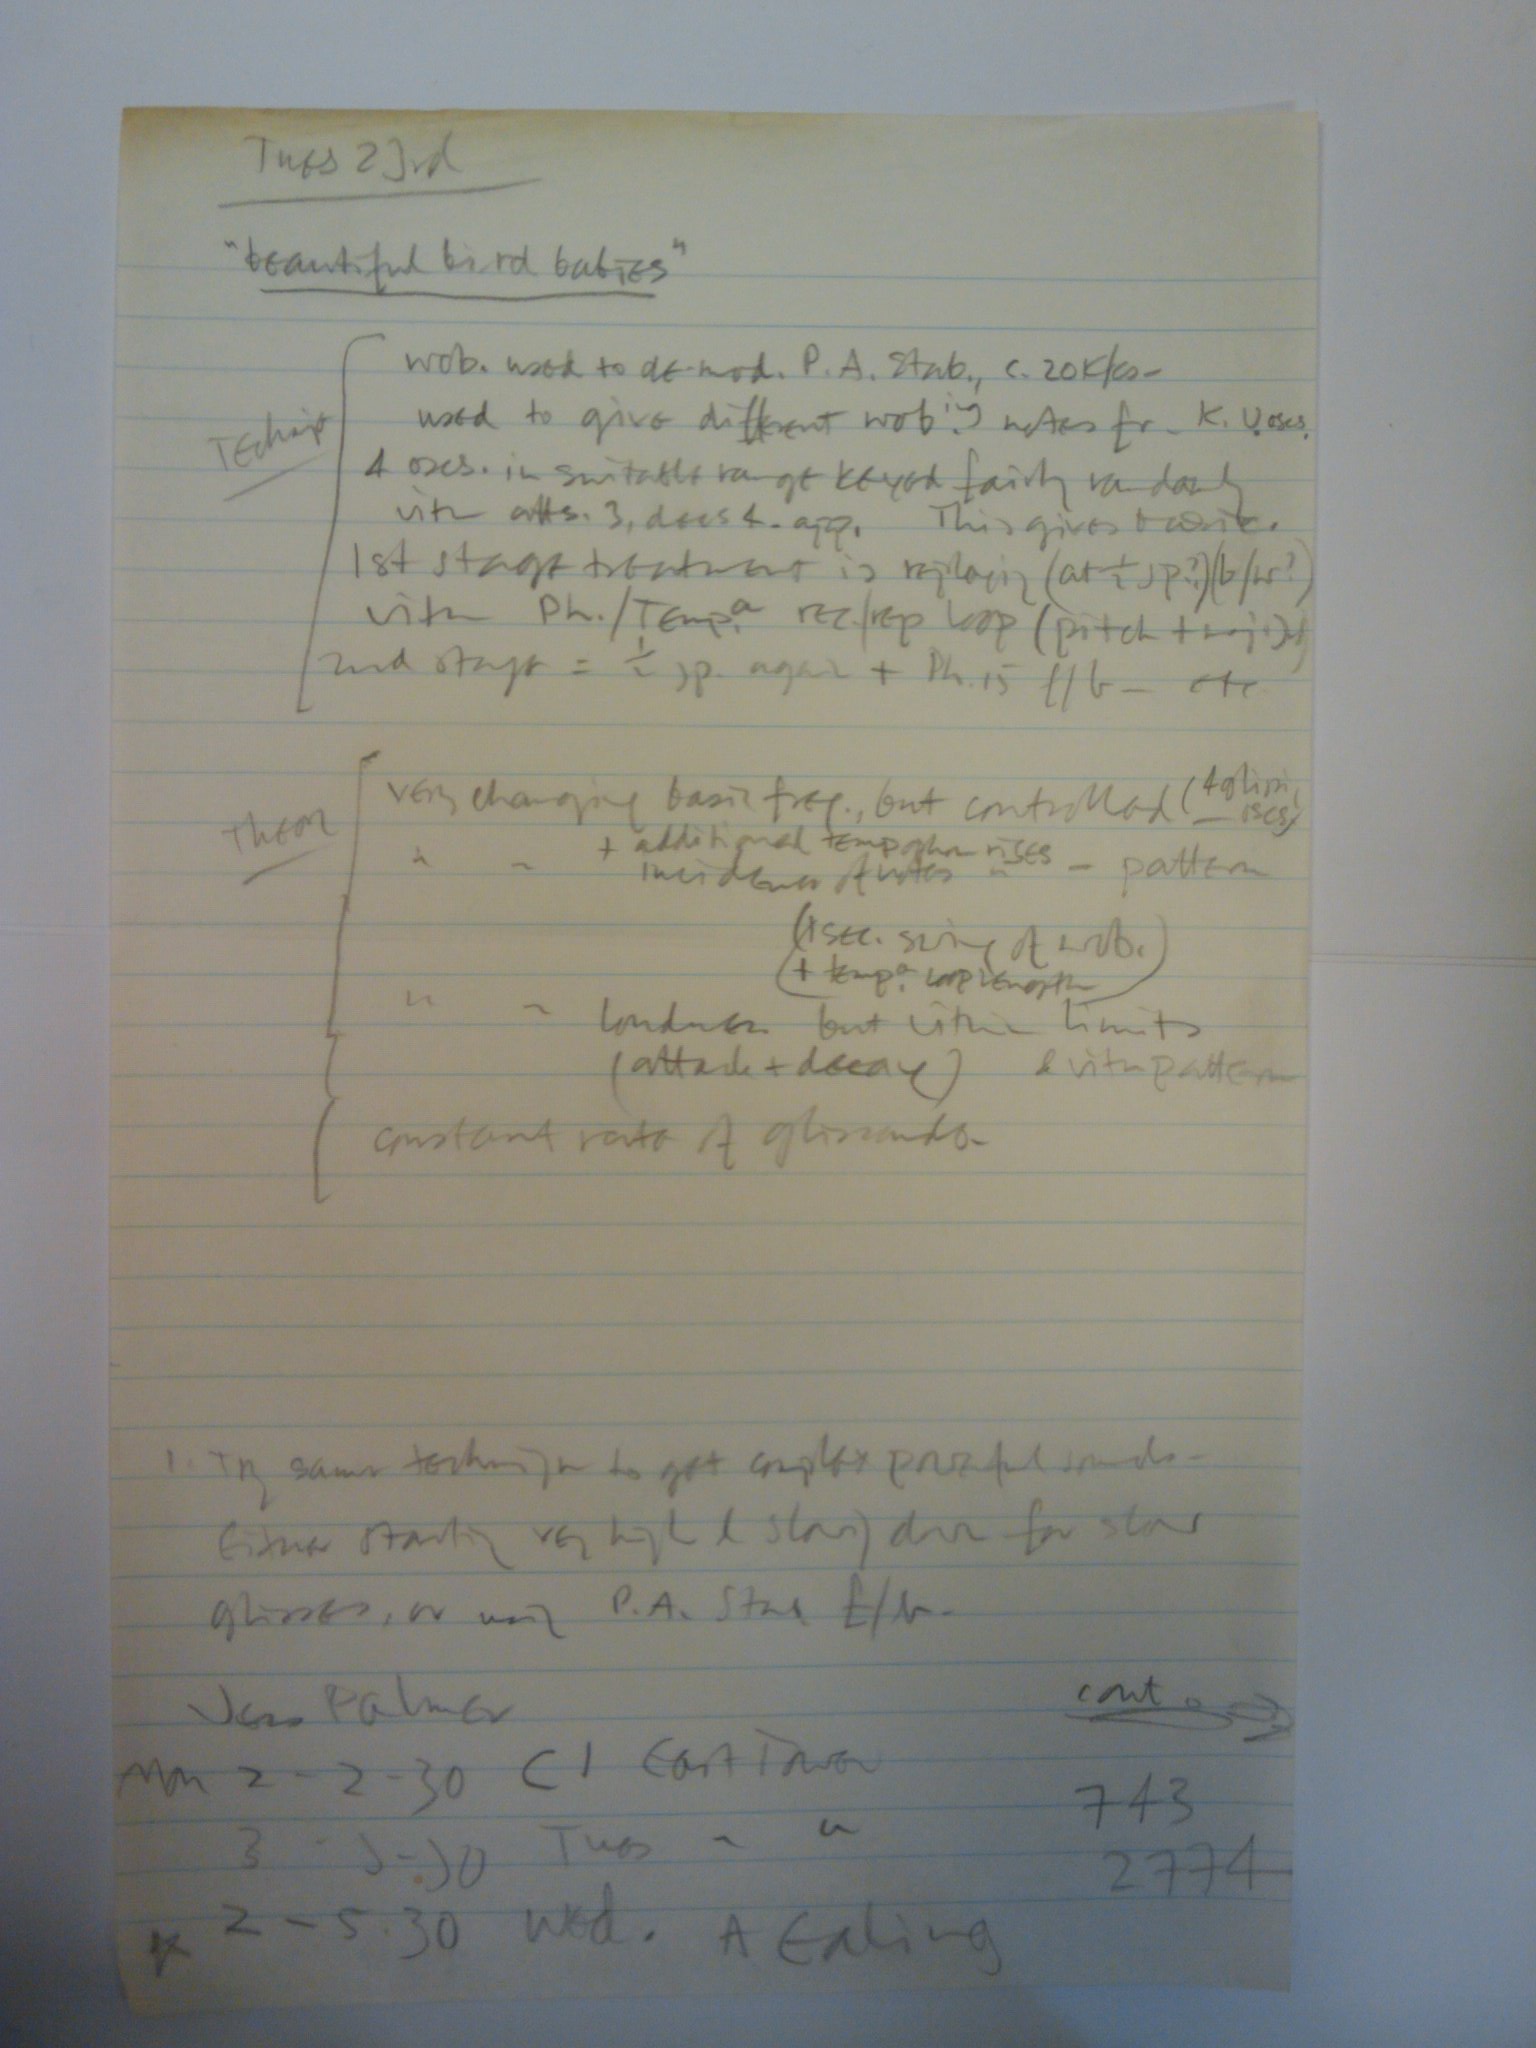 Tues 23rd
"beautiful bird babies"
Techniq
wob. used to de-mod. P.A. Stab., c. 20K/cs -
used to give different wob'ing notes fr. K. U. oscs.
4 oscs. in suitable range keyed fairly randomly
with atts. 3, decs 4. app. This gives basic.
1st stage treatment is replaying (at ½ sp.?) (b/w?)
with Ph./Tempa. rec/rep loop (pitch +
2nd stage = ½ sp. again + Ph. 15 f/b - etc
Theory
very changing basic freq., but controlled (4 gliss, oscs)
+ additional tempophon rises
" " incidence of notes " - pattern
(1 sec. swing of wob.
+ tempa. loop length)
" " loudness but within limits
(attack + decay) & with pattern
constant rate of glissando.
1. Try same technique to get complex powerful sounds -
Either starting very high & slowing down for slow
glisses, or using P.A. Stab f/b -
Palmer
cont.
Mon 2 - 2-30 C1 East Tower
743
3 - 3-30 Tues " "
2774
x 2 - 5.30 Wed. A Ealing